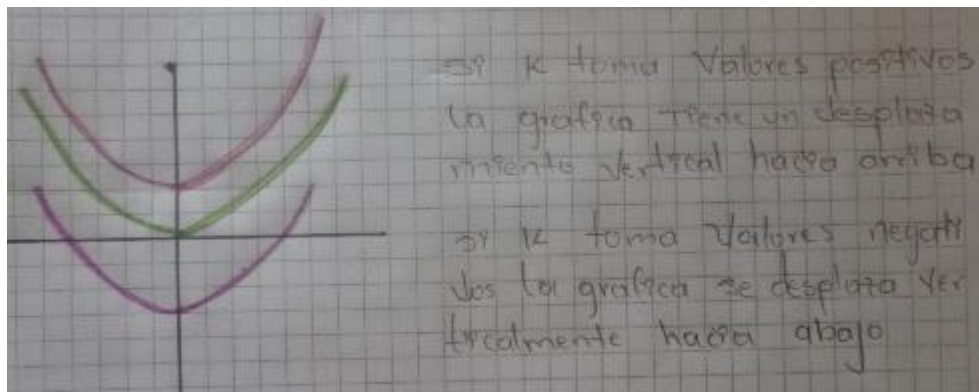 Si K toma Valores positivos
la grafica tiene un desplaza
miento vertical hacia arriba
Si K toma Valores negati
vos la grafica se desplaza ver
ticalmente hacia abajo